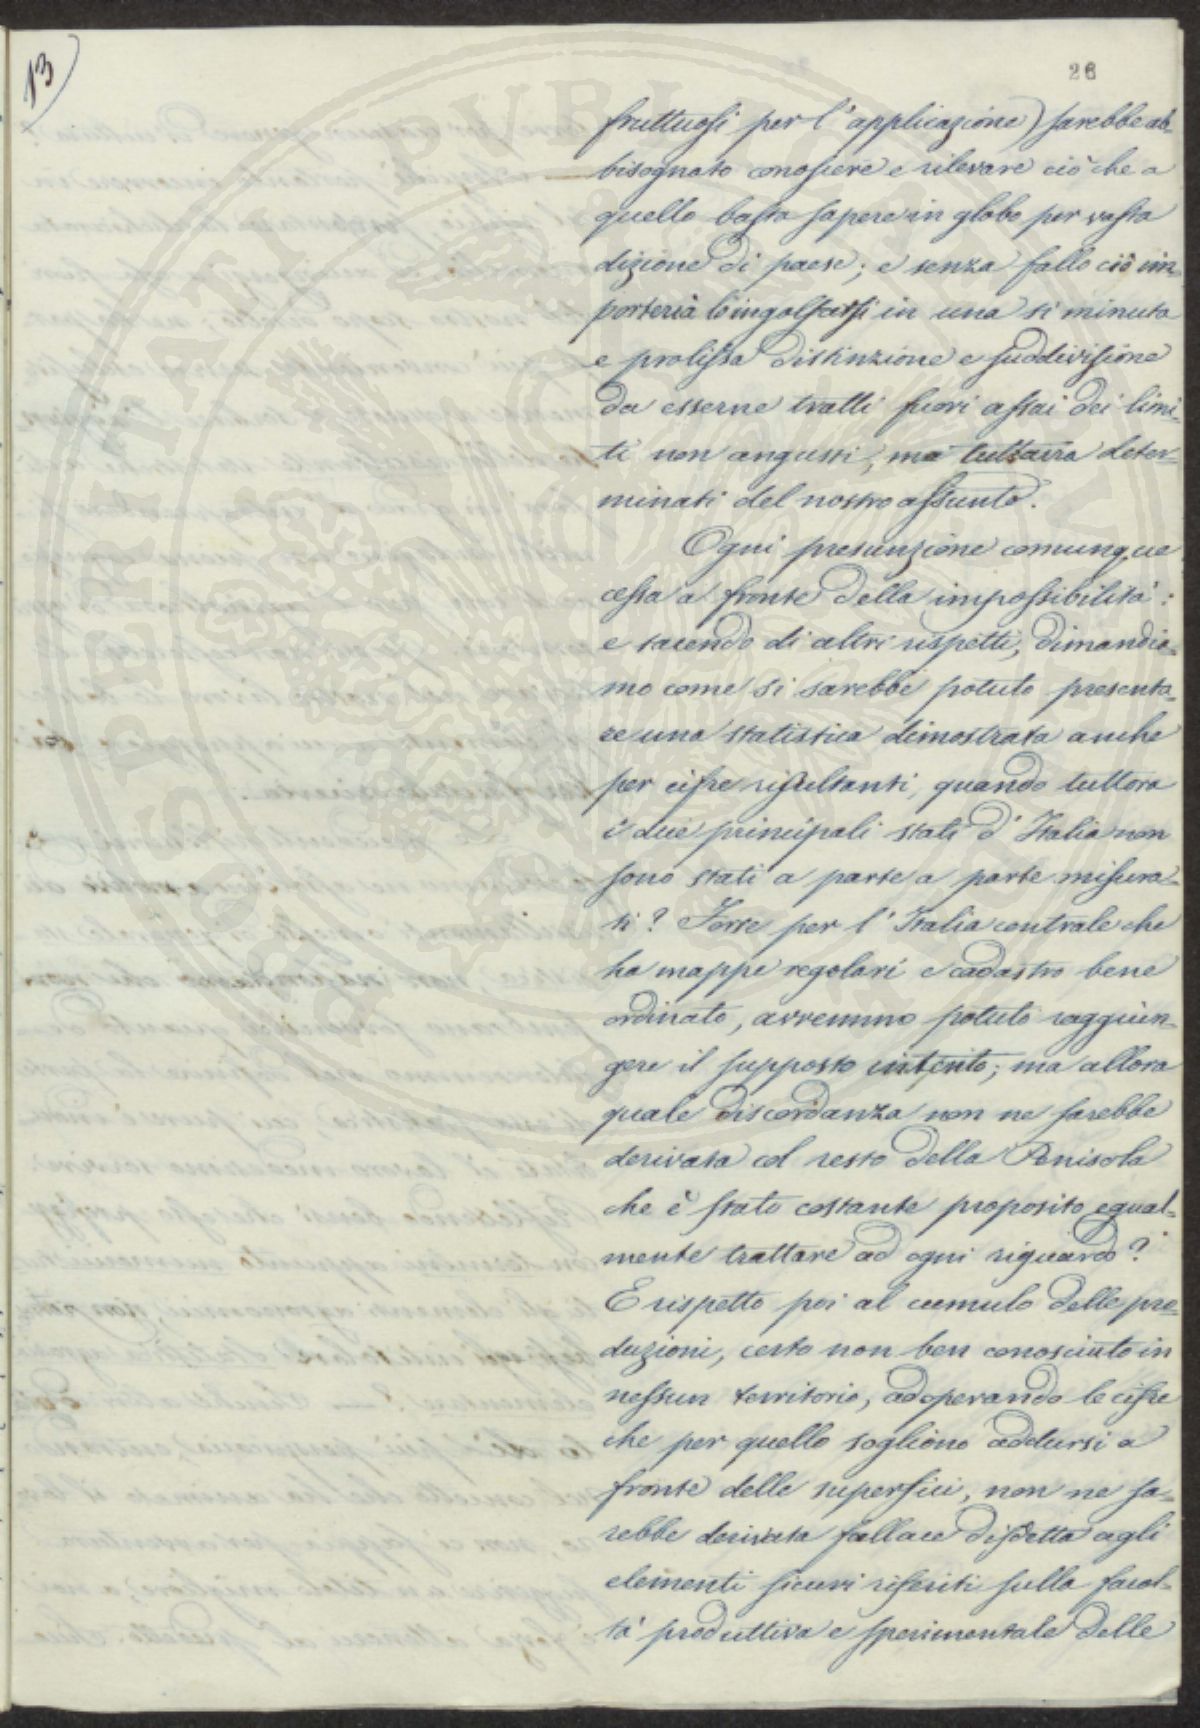 13)
26
fruttuosi per l'applicazione) sarebbe ab-
bisognato conoscere e rilevare ciò che a
quello basta sapere in globo per vasta
dizione di paese; e senza fallo ciò im-
porteria lo ingolfarsi in una sì minuta
e prolissa distinzione e suddivisione
da esserne tratti fuori assai dei limi-
ti non angusti, ma tuttavia deter-
minati del nostro assunto.
Ogni presunzione comunque
cessa a fronte della impossibilità:
e tacendo di altri rispetti, dimandia-
mo come si sarebbe potuto presenta-
re una statistica dimostrata anche
per cifre risultanti, quando tuttora
i due principali stati d'Italia non
sono stati a parte a parte misura-
ti? Forse per l'Italia centrale che
ha mappe regolari e cadastro bene
ordinato, avremmo potuto raggiun-
gere il supposto intento; ma allora
quale discordanza non ne sarebbe
derivata col resto della Penisola
che è stato costante proposito egual-
mente trattare ad ogni riguardo?
E rispetto poi al cumulo delle pro-
duzioni, certo non ben conosciuto in
nessun territorio, adoperando le cifre
che per quello sogliono addursi a
fronte delle superfici, non ne sa-
rebbe derivata fallace disdetta agli
elementi sicuri riferiti sulla facol-
tà produttiva e sperimentale delle
PROSPERITATI PVBLICAE